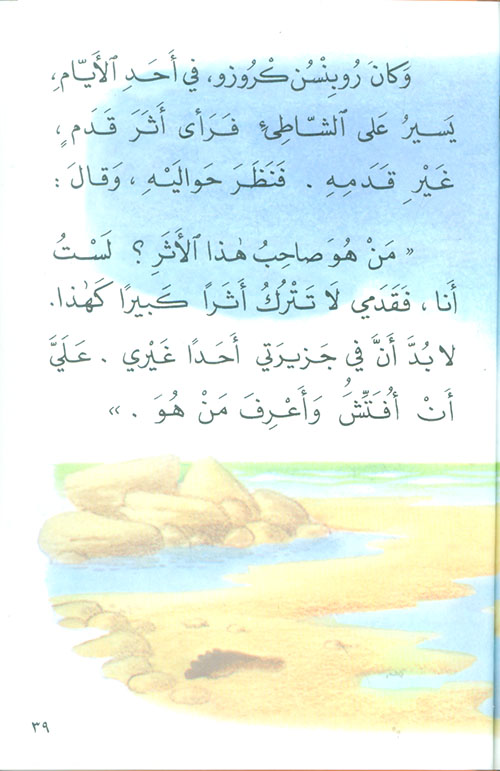 وَكانَ رُوبِنْسُن كْرُوزو، في أَحَدِ ٱلأَيّامِ،
يَسيرُ عَلى ٱلشّاطِئِ فَرَأى أَثَرَ قَدَمٍ،
غَيْرِ قَدَمِهِ . فَنَظَرَ حَوالَيْهِ ، وَقالَ :
« مَنْ هُوَ صاحِبُ هٰذا ٱلأَثَرِ ؟ لَسْتُ
أَنا ، فَقَدَمي لَا تَتْرُكُ أَثَرًا كَبيرًا كَهٰذا.
لابُدَّ أَنَّ في جَزيرَتي أَحَدًا غَيْري . عَلَيَّ
أَنْ أُفَتِّشَ وَأَعْرِفَ مَنْ هُوَ . »
٣٩